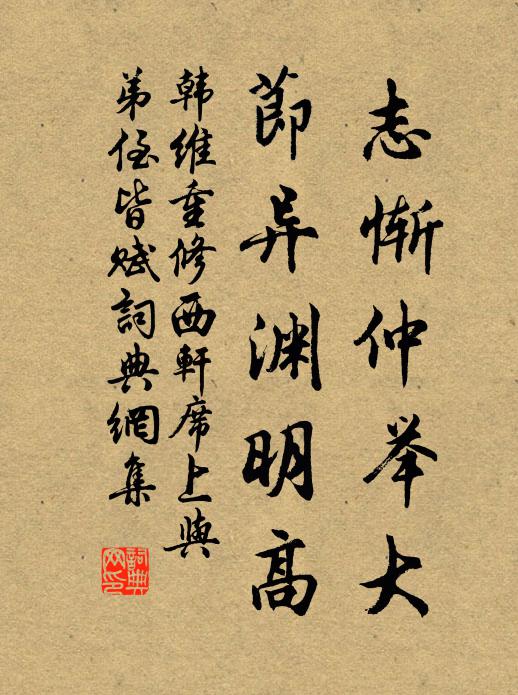 志惭仲举大
节异渊明高
韩维重修西軒席上與
弟侄皆赋詞典網集
詞典网印